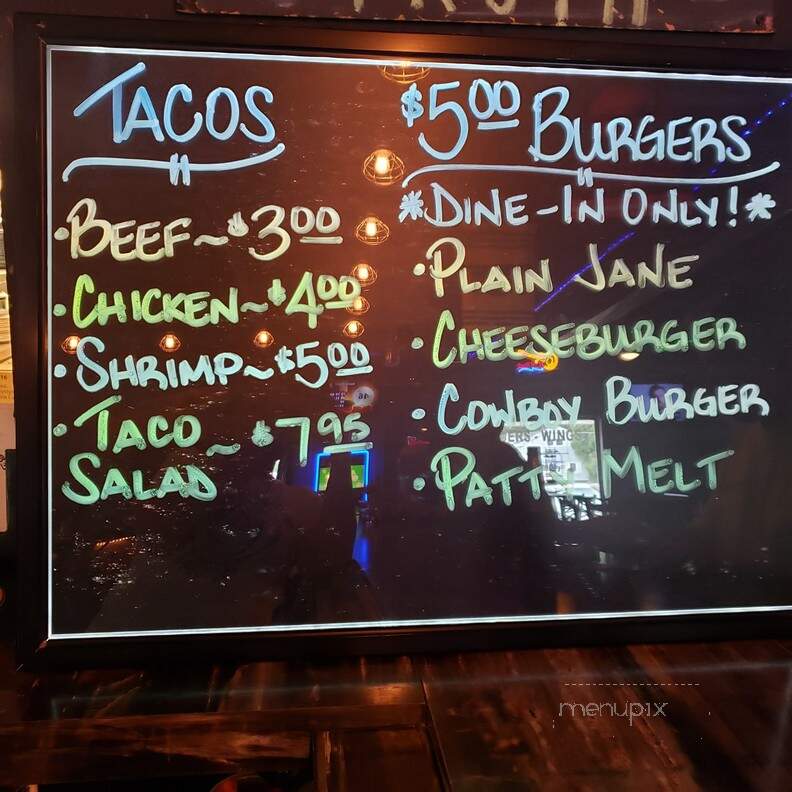 TACOS
• BEEF ~ $3.00
• CHICKEN ~ $4.00
• SHRIMP ~ $5.00
• TACO SALAD ~ $7.95
$5.00 BURGERS
*DINE-IN ONLY!*
• PLAIN JANE
• CHEESEBURGER
• COWBOY BURGER
• PATTY MELT
WINGS
menupix